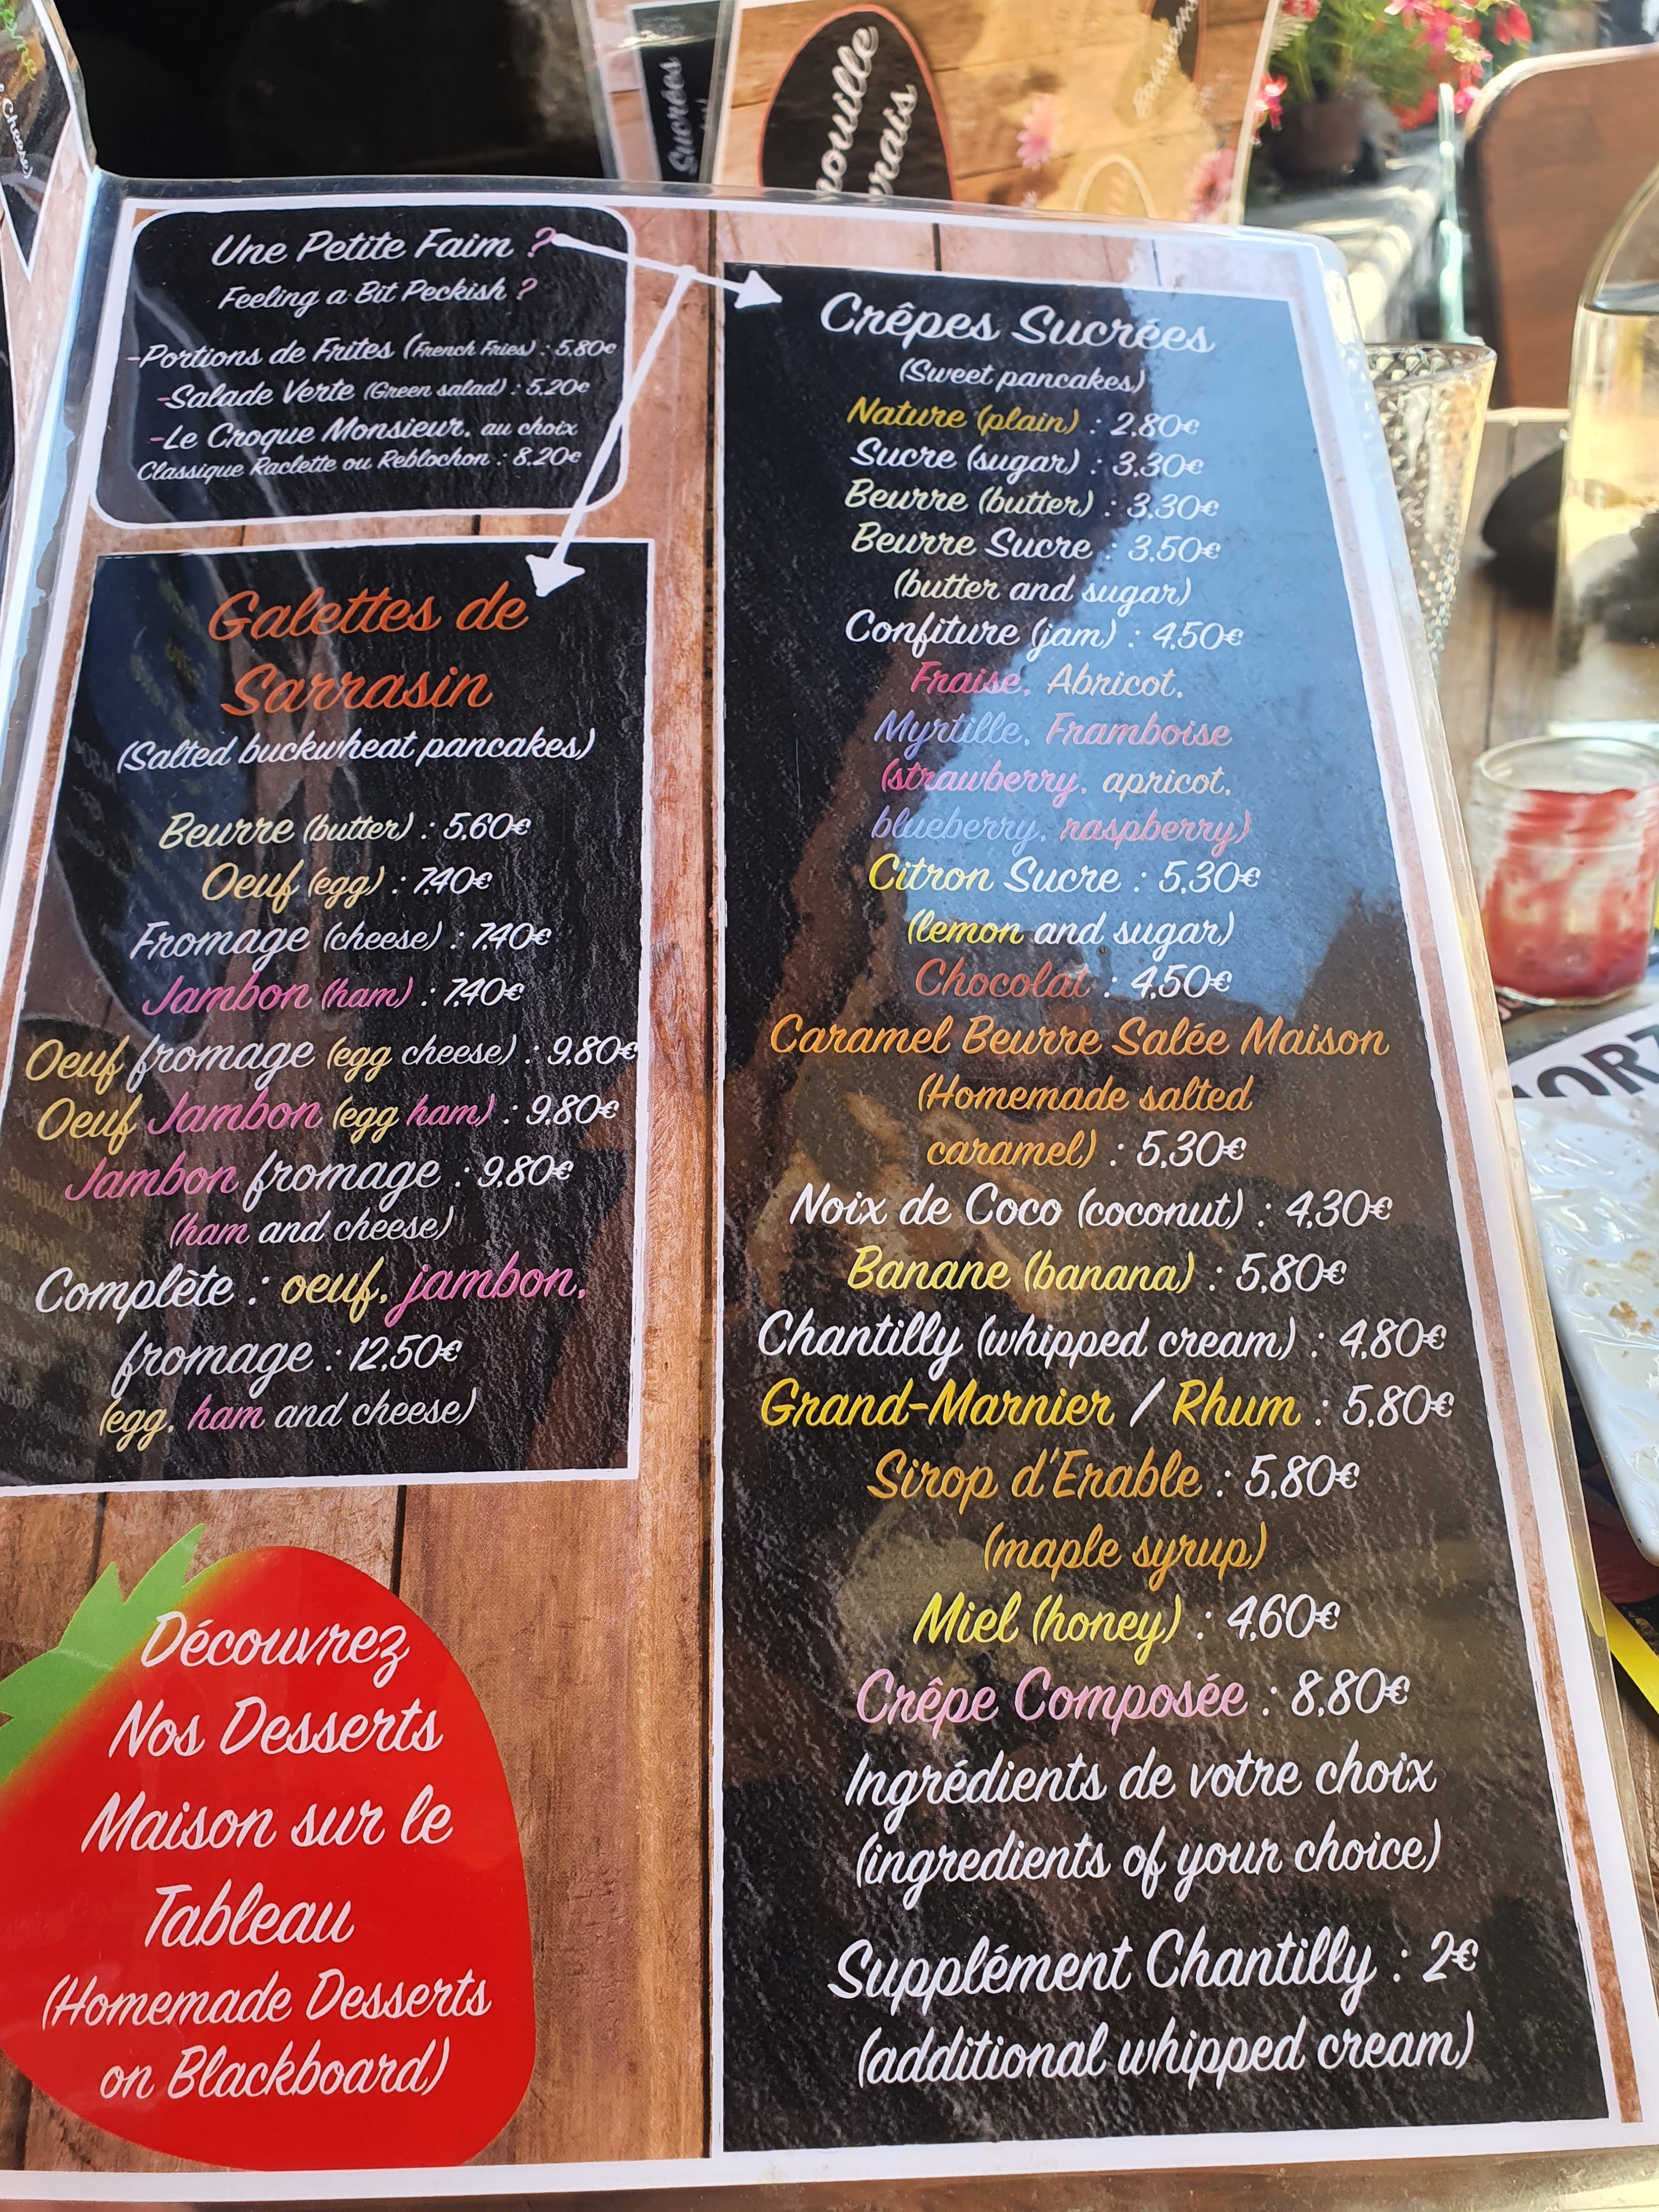 Cheese)
Sucrées
Une Petite Faim ?
Feeling a Bit Peckish ?
-Portions de Frites (French Fries) : 5,80€
-Salade Verte (Green salad) : 5,20€
-Le Croque Monsieur, au choix
Classique Raclette ou Reblochon : 8,20€
Galettes de
Sarrasin
(Salted buckwheat pancakes)
Beurre (butter) : 5,60€
Oeuf (egg) : 7,40€
Fromage (cheese) : 7,40€
Jambon (ham) : 7,40€
Oeuf fromage (egg cheese) : 9,80€
Oeuf Jambon (egg ham) : 9,80€
Jambon fromage : 9,80€
(ham and cheese)
Complète : oeuf, jambon,
fromage : 12,50€
(egg, ham and cheese)
Découvrez
Nos Desserts
Maison sur le
Tableau
(Homemade Desserts
on Blackboard)
Crêpes Sucrées
(Sweet pancakes)
Nature (plain) : 2,80€
Sucre (sugar) : 3,30€
Beurre (butter) : 3,30€
Beurre Sucre : 3,50€
(butter and sugar)
Confiture (jam) : 4,50€
Fraise, Abricot,
Myrtille, Framboise
(strawberry, apricot,
blueberry, raspberry)
Citron Sucre : 5,30€
(lemon and sugar)
Chocolat : 4,50€
Caramel Beurre Salée Maison
(Homemade salted
caramel) : 5,30€
Noix de Coco (coconut) : 4,30€
Banane (banana) : 5,80€
Chantilly (whipped cream) : 4,80€
Grand-Marnier / Rhum : 5,80€
Sirop d'Erable : 5,80€
(maple syrup)
Miel (honey) : 4,60€
Crêpe Composée : 8,80€
Ingrédients de votre choix
(ingredients of your choice)
Supplément Chantilly : 2€
(additional whipped cream)